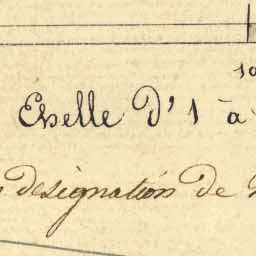 10
Echelle d'1 à
désignation de